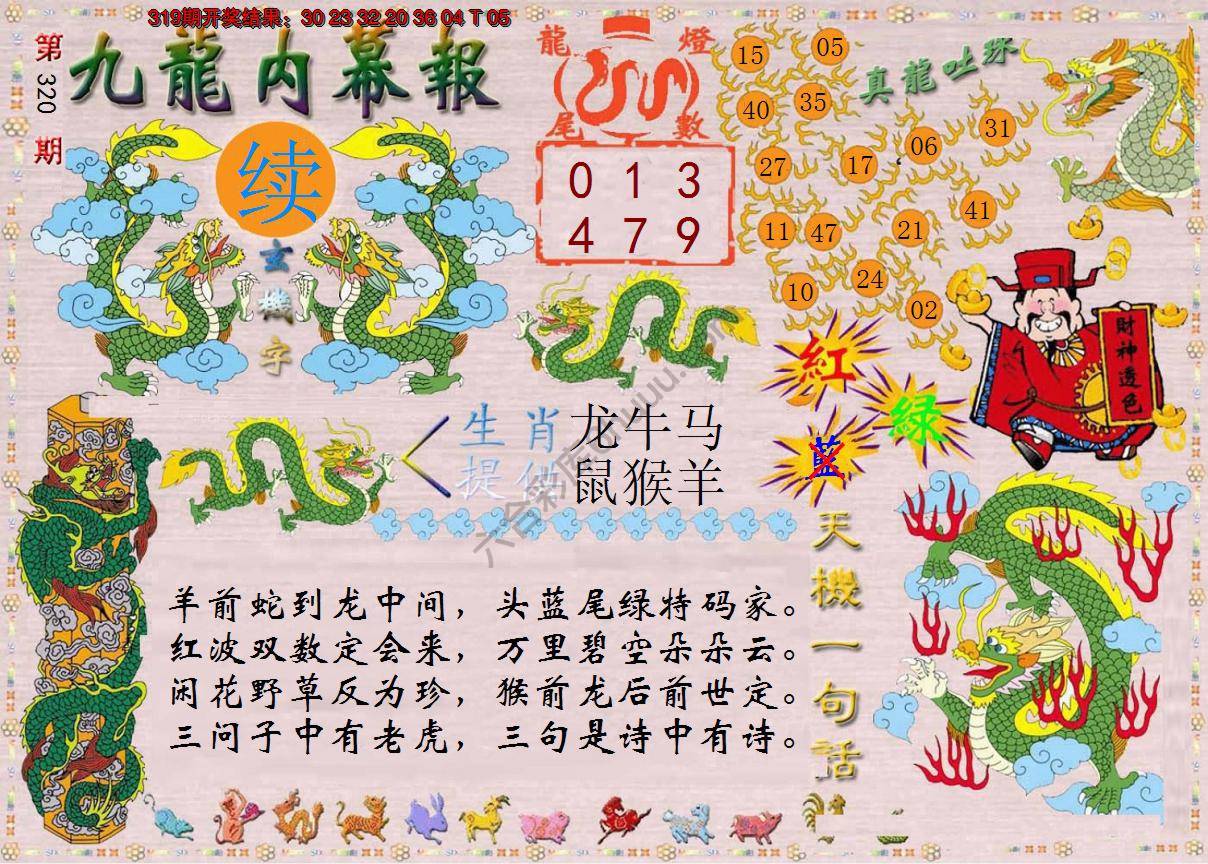 319期开奖结果：30 23 32 20 36 04 T 05
第320期
九龍内幕報
续
玄機字
龍燈
尾數
0 1 3
4 7 9
真龍吐珠
15 05
40 35
27 17 06 31
11 47 21 41
10 24 02
財神透色
紅
绿
藍
生肖 龙牛马
提供 鼠猴羊
六合彩库
天機一句話
羊前蛇到龙中间，头蓝尾绿特码家。
红波双数定会来，万里碧空朵朵云。
闲花野草反为珍，猴前龙后前世定。
三问子中有老虎，三句是诗中有诗。